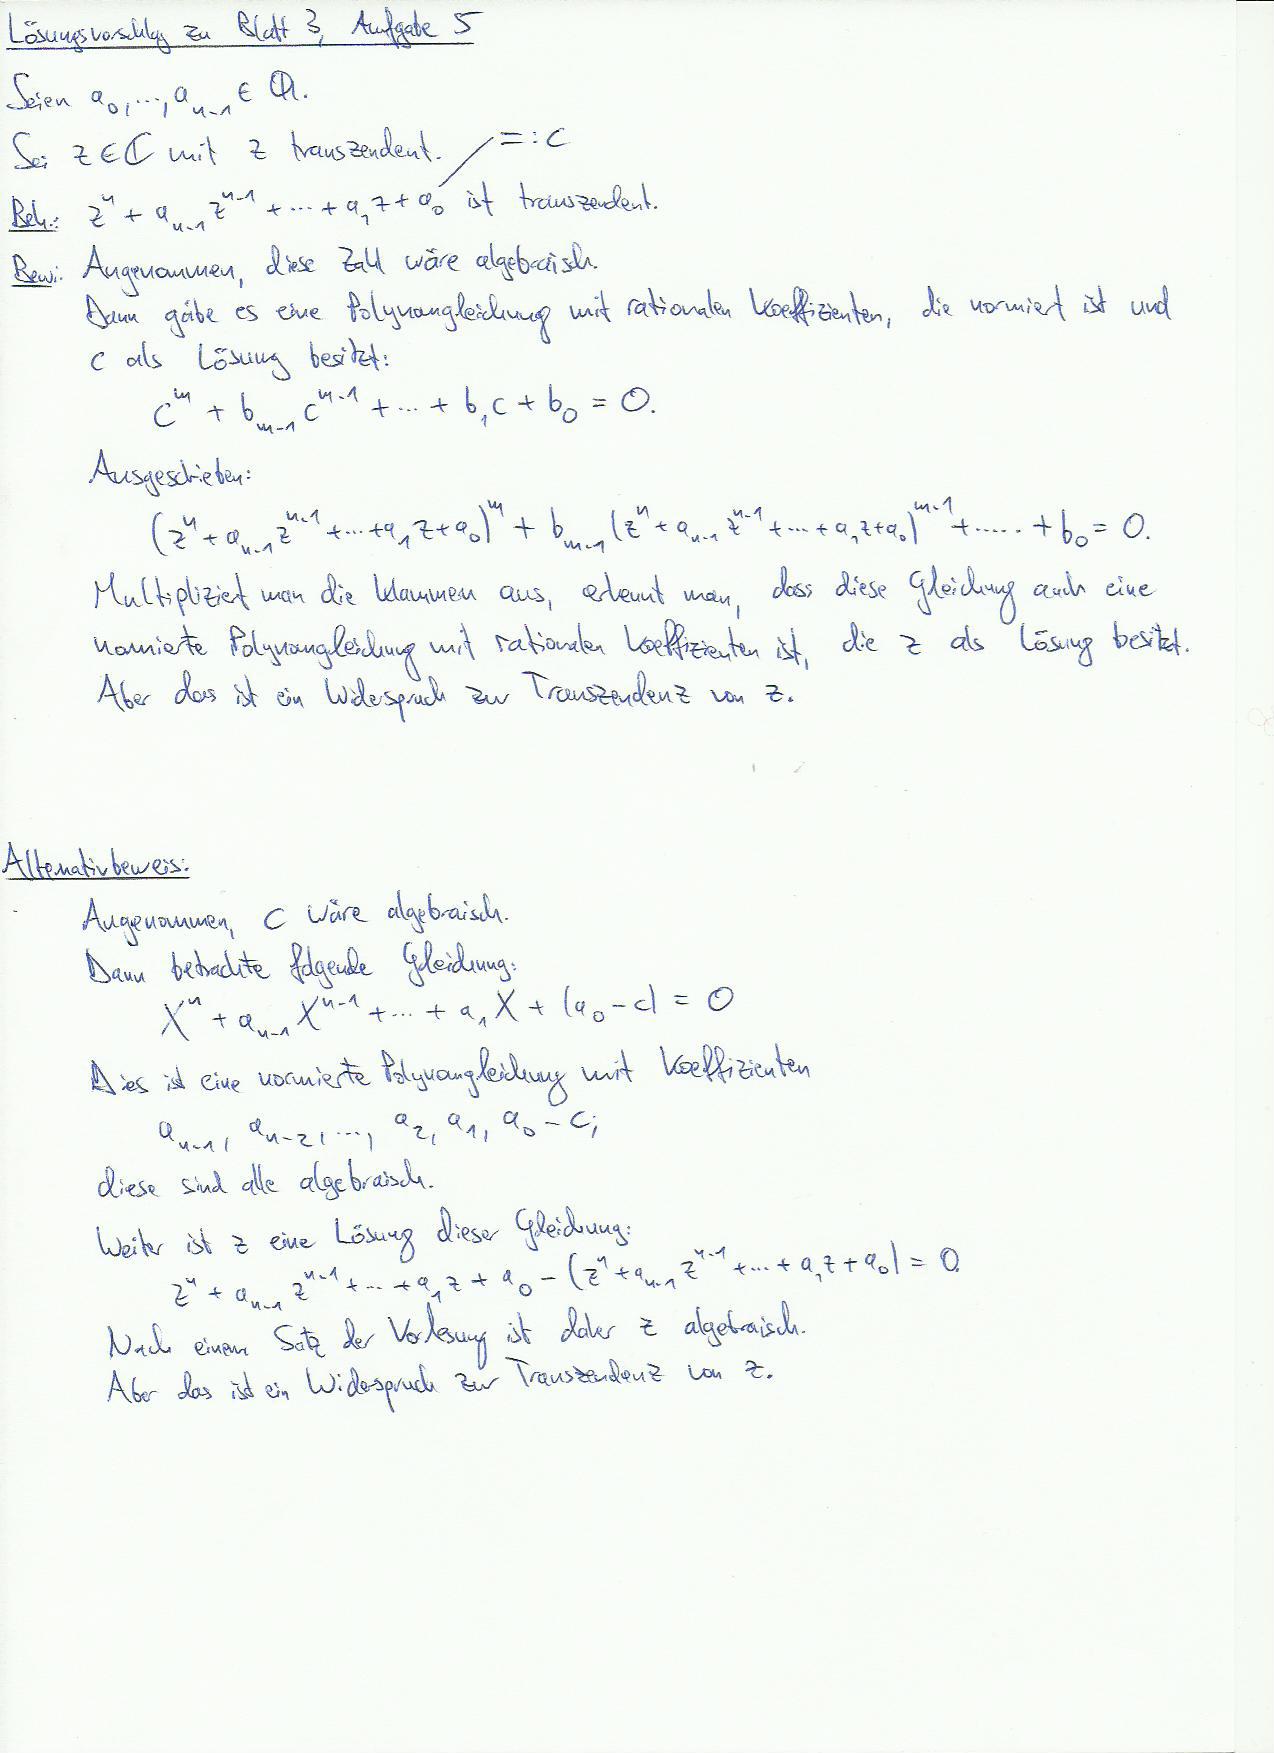 Lösungsvorschlag zu Blatt 3, Aufgabe 5
Seien a₀, ..., aₙ₋₁ ∈ ℚ.
Sei z ∈ ℂ mit z transzendent.
=: c
Beh.: zⁿ + aₙ₋₁ zⁿ⁻¹ + ... + a₁ z + a₀ ist transzendent.
Bew: Angenommen, diese Zahl wäre algebraisch.
Dann gäbe es eine Polynomgleichung mit rationalen Koeffizienten, die normiert ist und
c als Lösung besitzt:
cᵐ + bₘ₋₁ cᵐ⁻¹ + ... + b₁ c + b₀ = 0.
Ausgeschrieben:
(zⁿ + aₙ₋₁ zⁿ⁻¹ + ... + a₁ z + a₀)ᵐ + bₘ₋₁ (zⁿ + aₙ₋₁ zⁿ⁻¹ + ... + a₁ z + a₀)ᵐ⁻¹ + ..... + b₀ = 0.
Multipliziert man die Klammern aus, erkennt man, dass diese Gleichung auch eine
normierte Polynomgleichung mit rationalen Koeffizienten ist, die z als Lösung besitzt.
Aber das ist ein Widerspruch zur Transzendenz von z.
Alternativbeweis:
Angenommen, c wäre algebraisch.
Dann betrachte folgende Gleichung:
Xⁿ + aₙ₋₁ Xⁿ⁻¹ + ... + a₁ X + (a₀ - c) = 0
Dies ist eine normierte Polynomgleichung mit Koeffizienten
aₙ₋₁, aₙ₋₂, ..., a₂, a₁, a₀ - c;
diese sind alle algebraisch.
Weiter ist z eine Lösung dieser Gleichung:
zⁿ + aₙ₋₁ zⁿ⁻¹ + ... + a₁ z + a₀ - (zⁿ + aₙ₋₁ zⁿ⁻¹ + ... + a₁ z + a₀) = 0.
Nach einem Satz der Vorlesung ist daher z algebraisch.
Aber das ist ein Widerspruch zur Transzendenz von z.